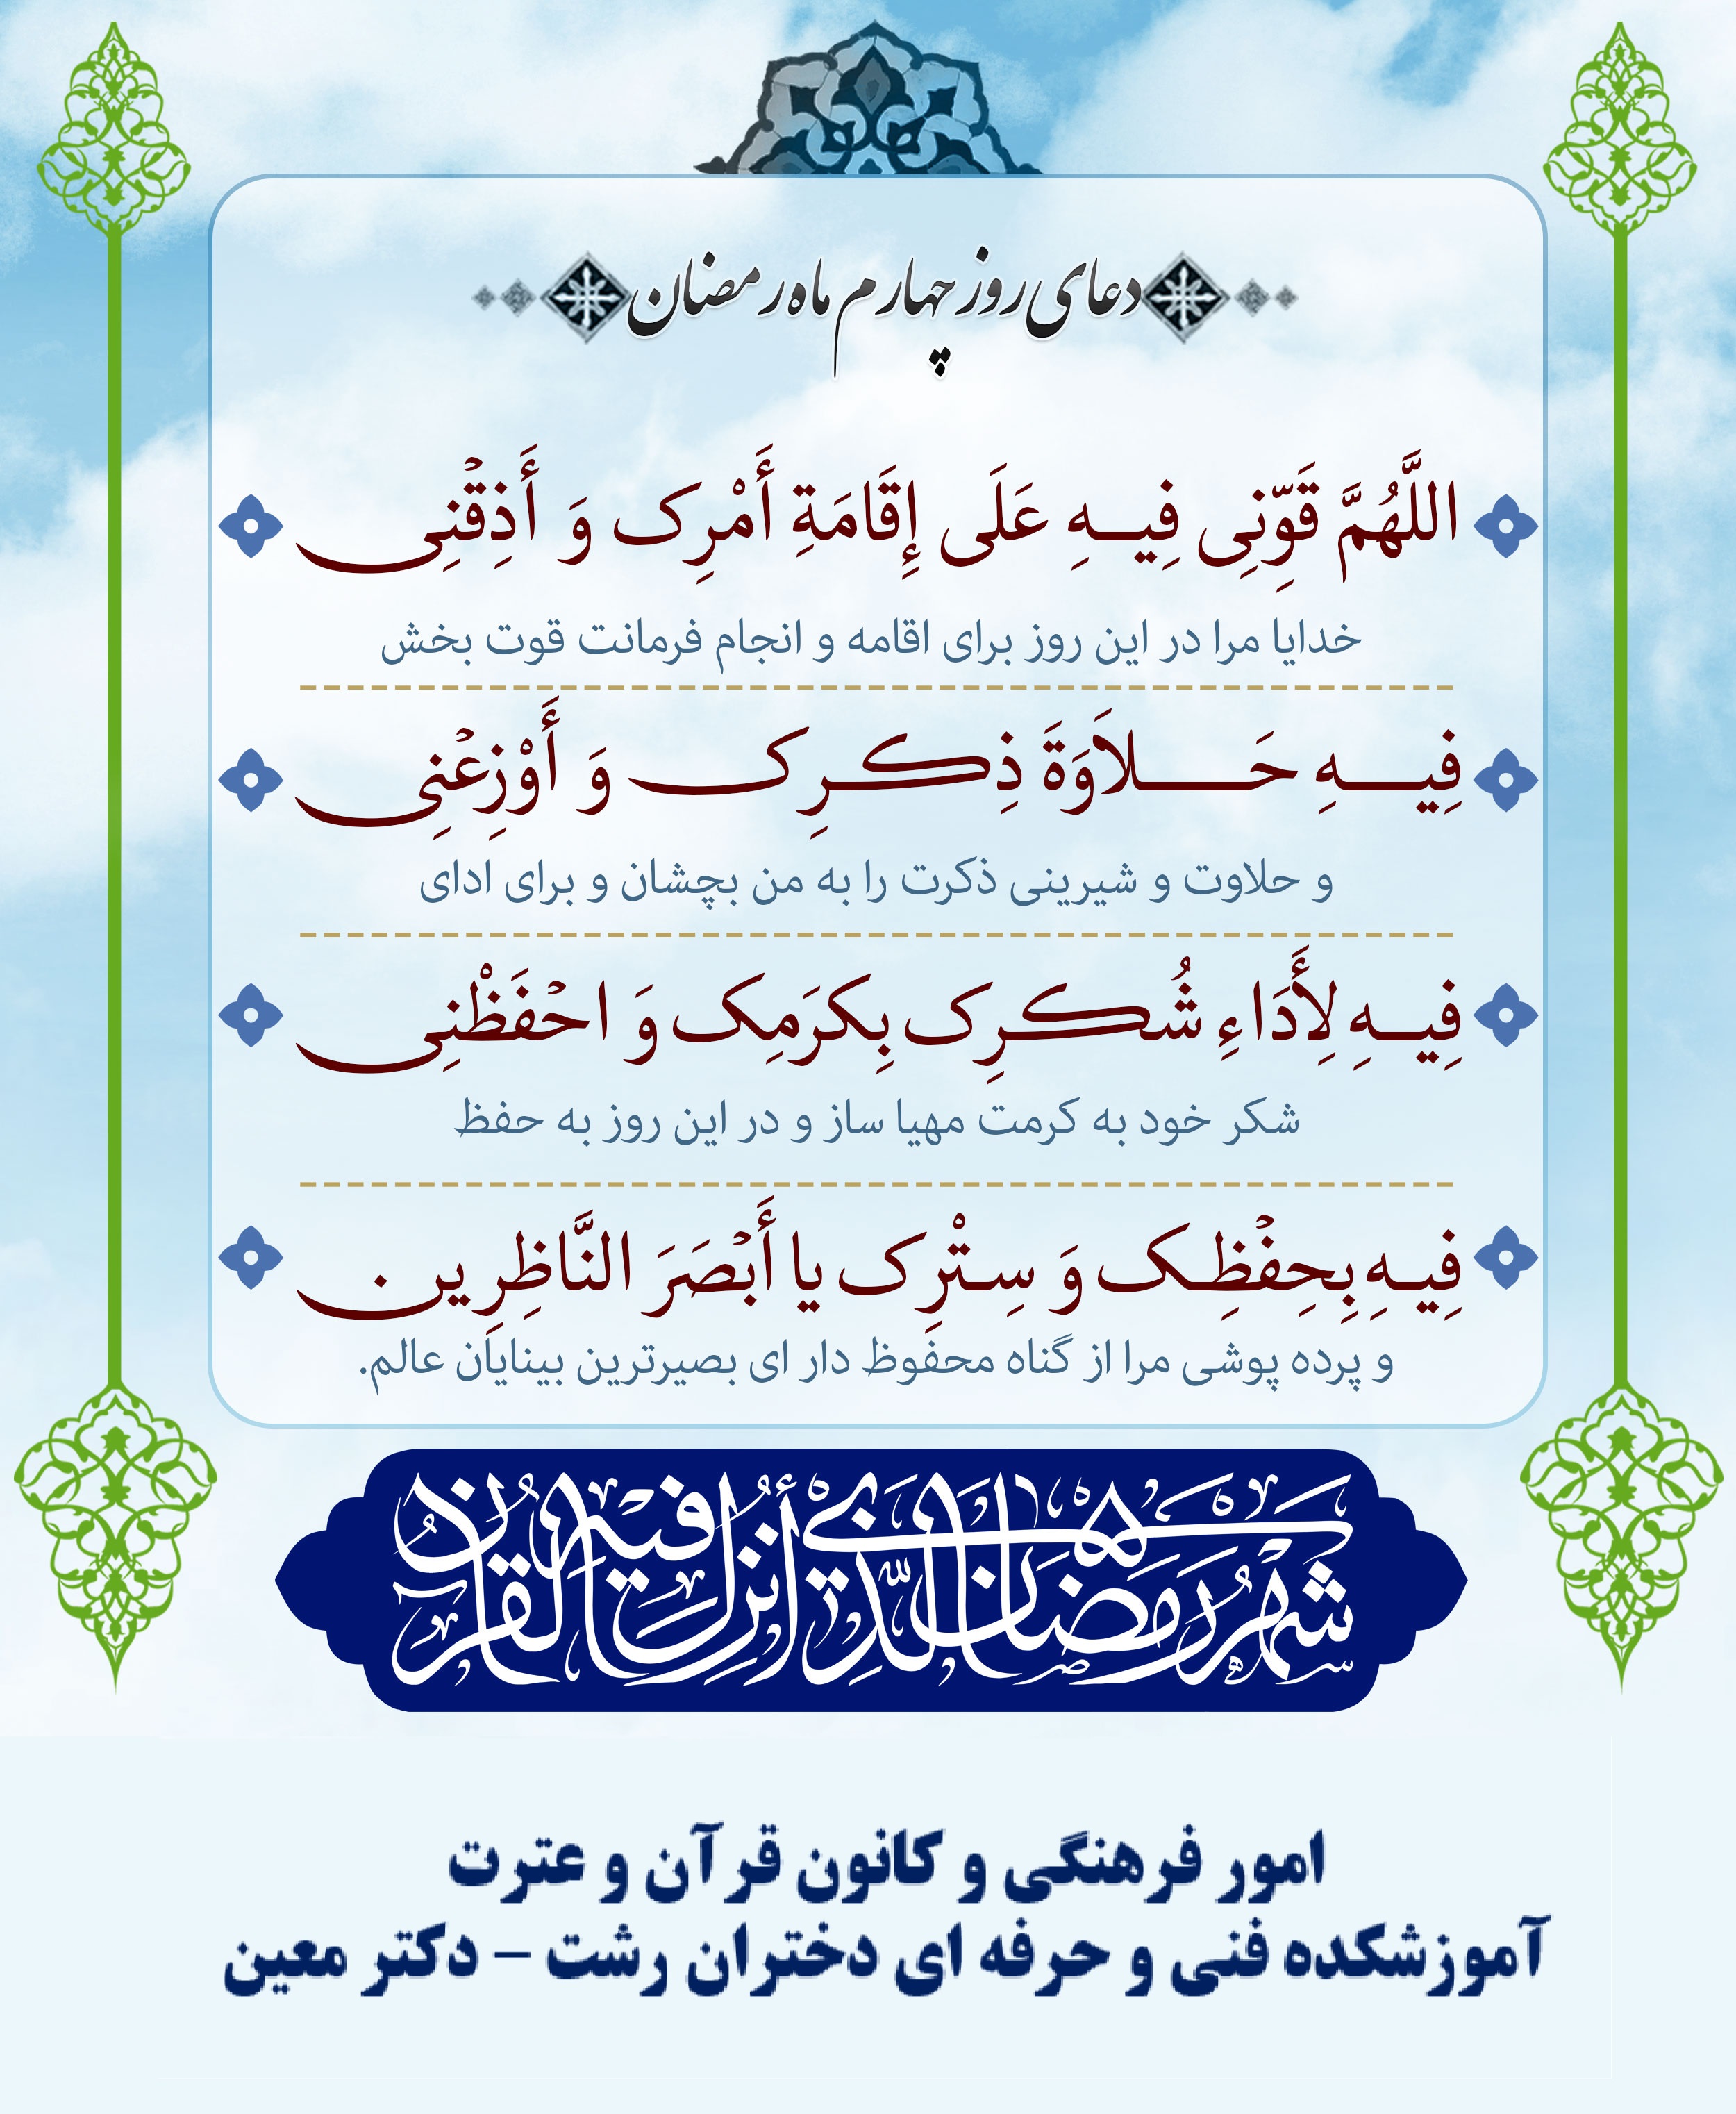 دعای روز چهارم ماه رمضان
اللَّهُمَّ قَوِّنِی فِیـهِ عَلَی إِقَامَةِ أَمْرِک وَ أَذِقْنِی
خدایا مرا در این روز برای اقامه و انجام فرمانت قوت بخش
فِیـهِ حَـلاَوَةَ ذِکـرِک وَ أَوْزِعْنِی
و حلاوت و شیرینی ذکرت را به من بچشان و برای ادای
فِیـهِ لِأَدَاءِ شُکـرِک بِکرَمِک وَ احْفَظْنِی
شکر خود به کرمت مهیا ساز و در این روز به حفظ
فِیـهِ بِحِفْظِـک وَ سِتْرِک یا أَبْصَرَ النَّاظِرِین
و پرده پوشی مرا از گناه محفوظ دار ای بصیرترین بینایان عالم.
شهر رمضان الذی أنزل فیه القرآن
امور فرهنگی و کانون قرآن و عترت
آموزشکده فنی و حرفه ای دختران رشت – دکتر معین